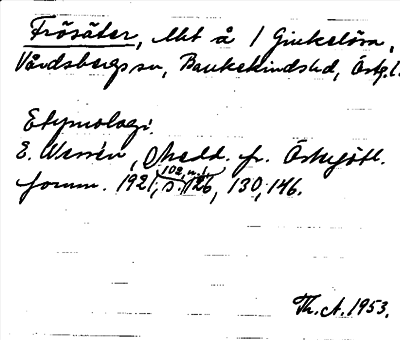 Frösäter, lht å 1 Ginkelösa,
Vårdsbergs sn, Bankekinds hd, Östg.l.
Etymologi.
E. Wessén, Medd. fr. Östergötl.
fornm. 1921, s. 102, 126, 130, 146.
Th. A. 1953.